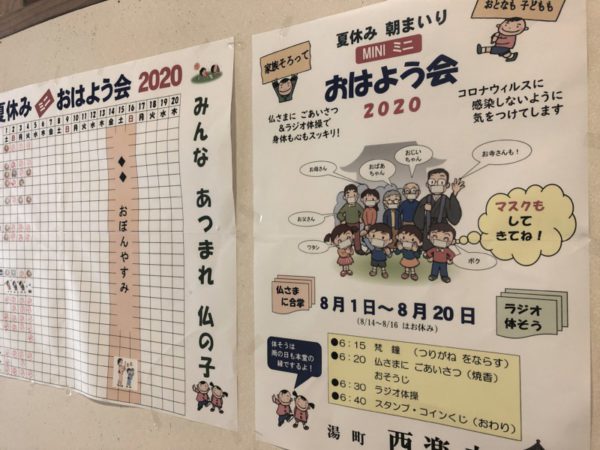 夏休み ミニ おはよう会 2020
1 2 3 4 5 6 7 8 9 10 11 12 13 14 15 16 17 18 19 20
土 日 月 火 水 木 金 土 日 月 火 水 木 金 土 日 月 火 水 木
おぼんやすみ
みんな あつまれ 仏の子
おとなも 子どもも
夏休み 朝まいり
家族そろって
MINI ミニ
おはよう会
2020
仏さまに ごあいさつ
&ラジオ体操で
身体も心もスッキリ!
コロナウィルスに
感染しないように
気をつけてします
お母さん
おばあちゃん
おじいちゃん
お寺さんも!
お父さん
ワタシ
ボク
マスクも
して
きてね!
仏さま
に合掌
8月1日～8月20日
(8/14～8/16 はお休み)
ラジオ
体そう
体そうは
雨の日も本堂の
縁でするよ!
●6:15 梵鐘 (つりがね をならす)
●6:20 仏さまに ごあいさつ (焼香)
おそうじ
●6:30 ラジオ体操
●6:40 スタンプ・コインくじ (おわり)
湯町 西楽